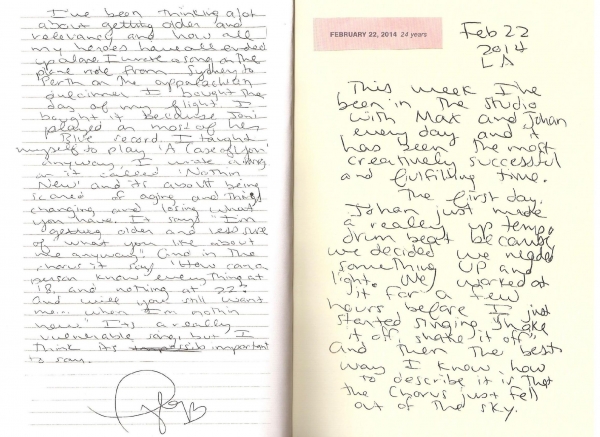 I've been thinking a lot
about getting older and
relevancy and how all
my heroes have all ended
up alone. I wrote a song on the
plane ride from Sydney to
Perth on the Appalachian
Dulcimer I bought the
day of my flight. I
bought it because Joni
played on most of her
Blue record. I taught
myself to play 'A Case of You'.
anyway, I wrote a song
on it called 'Nothing
New' and it's about being
scared of aging and things
changing and losing what
you have. It says "I'm
getting older and less sure
of what you like about
me anyway." and in the
chorus it says "How can a
person know everything at
18, and nothing at 22?
And will you still want
me... when I'm nothin
new." It's a really
vulnerable song, but I
think it's important
to say.
FEBRUARY 22, 2014 24 years
Feb 22
2014
LA
This week I've
been in the studio
with Max and Johan
every day and it
has been the most
creatively successful
and fulfilling time.
The first day,
Johan just made
a really up tempo
drum beat because
we decided we needed
something UP and
light. We worked at
it for a few
hours before I just
started singing "shake
it off, shake it off"
And then the best
way I know how
to describe it is that
the chorus just fell
out of the sky.